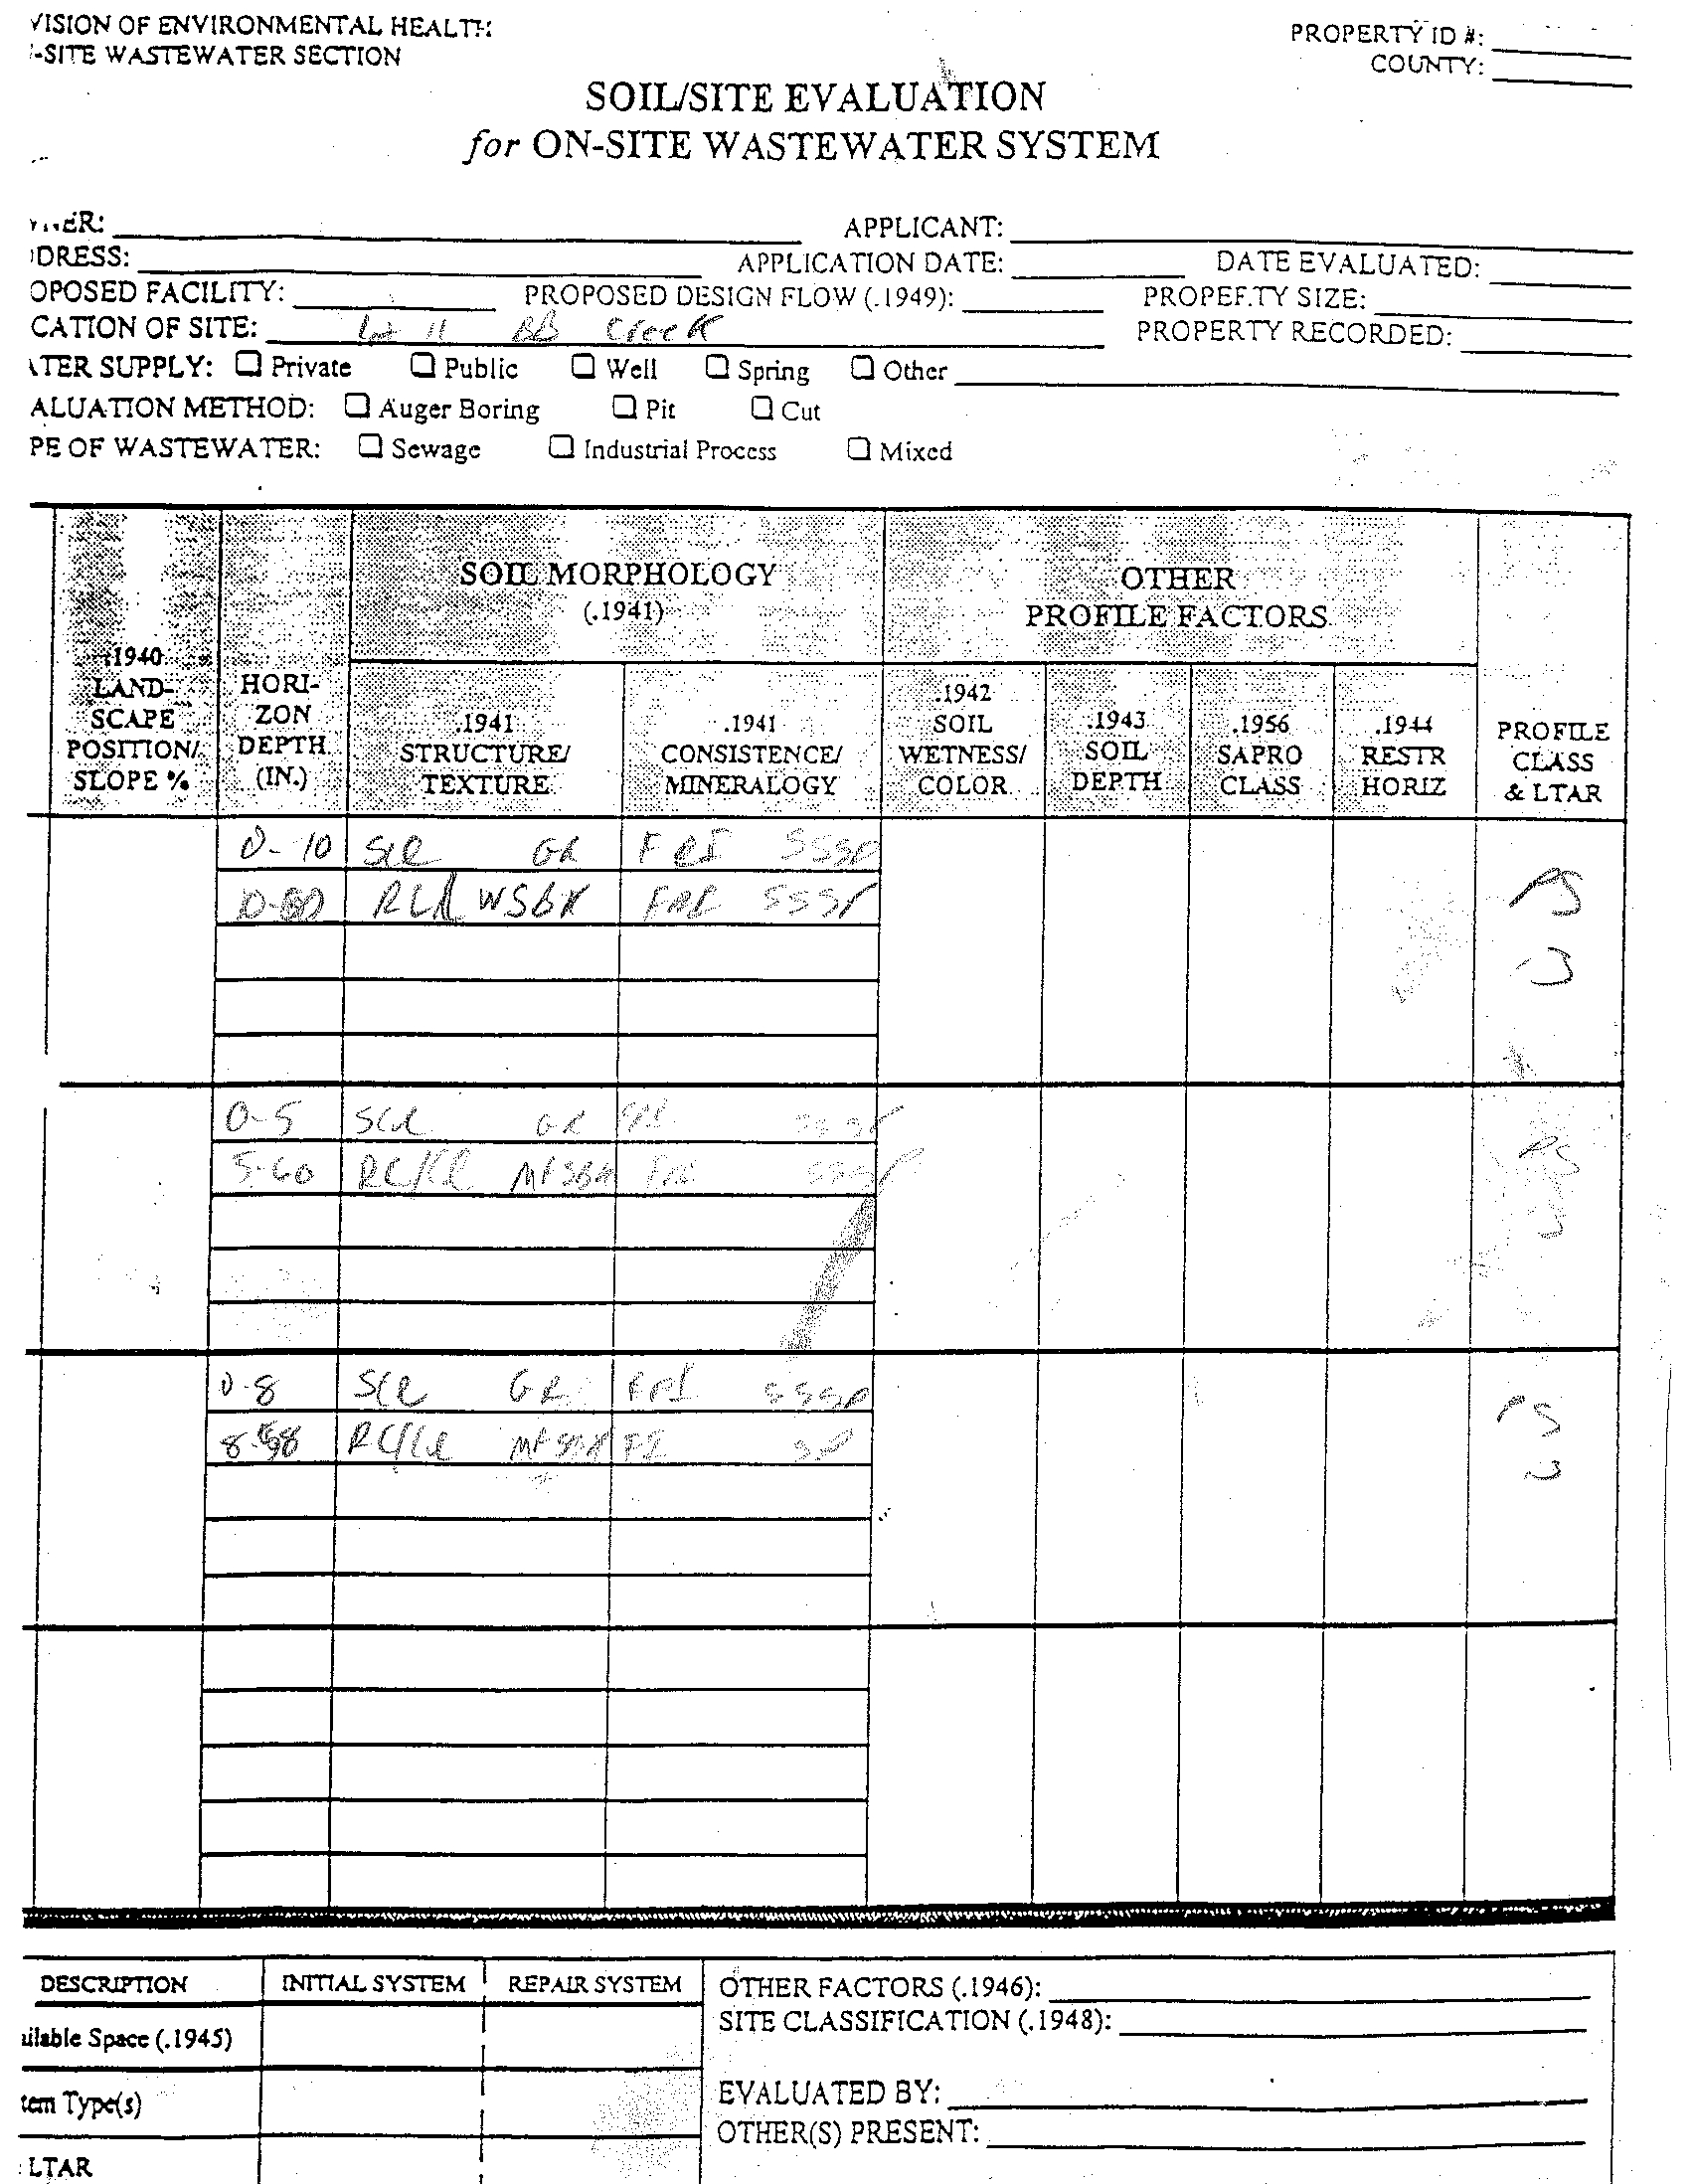 VISION OF ENVIRONMENTAL HEALTH
-SITE WASTEWATER SECTION
PROPERTY ID #:
COUNTY:
SOIL/SITE EVALUATION
for ON-SITE WASTEWATER SYSTEM
NER: APPLICANT:
DRESS: APPLICATION DATE: DATE EVALUATED:
OPOSED FACILITY: PROPOSED DESIGN FLOW (.1949): PROPERTY SIZE:
CATION OF SITE: Lot 11 BB Creek PROPERTY RECORDED:
TER SUPPLY: Private Public Well Spring Other
ALUATION METHOD: Auger Boring Pit Cut
PE OF WASTEWATER: Sewage Industrial Process Mixed
SOIL MORPHOLOGY
(.1941)
OTHER
PROFILE FACTORS
.1940
LAND-
SCAPE
POSITION/
SLOPE %
HORI-
ZON
DEPTH
(IN.)
.1941
STRUCTURE/
TEXTURE
.1941
CONSISTENCE/
MINERALOGY
.1942
SOIL
WETNESS/
COLOR
.1943
SOIL
DEPTH
.1956
SAPRO
CLASS
.1944
RESTR
HORIZ
PROFILE
CLASS
& LTAR
0-10 SCL GR FRI SSSP
WSBK FRI SSSP
PS
.3
0-5 SCL GR FRI SSSP
5-60 RC/CL SSSP
PS
.3
0-8 SCL GR FRI SSSP
8-58 RC/CL FI SP
PS
.3
DESCRIPTION INITIAL SYSTEM REPAIR SYSTEM
ailable Space (.1945)
tem Type(s)
LTAR
OTHER FACTORS (.1946):
SITE CLASSIFICATION (.1948):
EVALUATED BY:
OTHER(S) PRESENT: